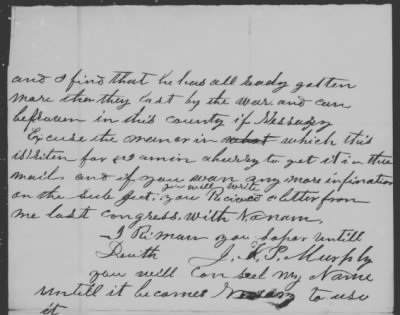 and I find that he has all Ready gotten
more than they Lost by the war. and can
be proven in this county if Nessary
Excuse the manor in which this
is riten for I am in a hurry to get it in the
mail and if you wan any more infination
on the Sub ject. you will write
you Recievd a letter from
me last congress. with No name.
I Re:main you
untill
Death J. K. P. Murphy
you will con seel my Name
untill it becomes to use
it